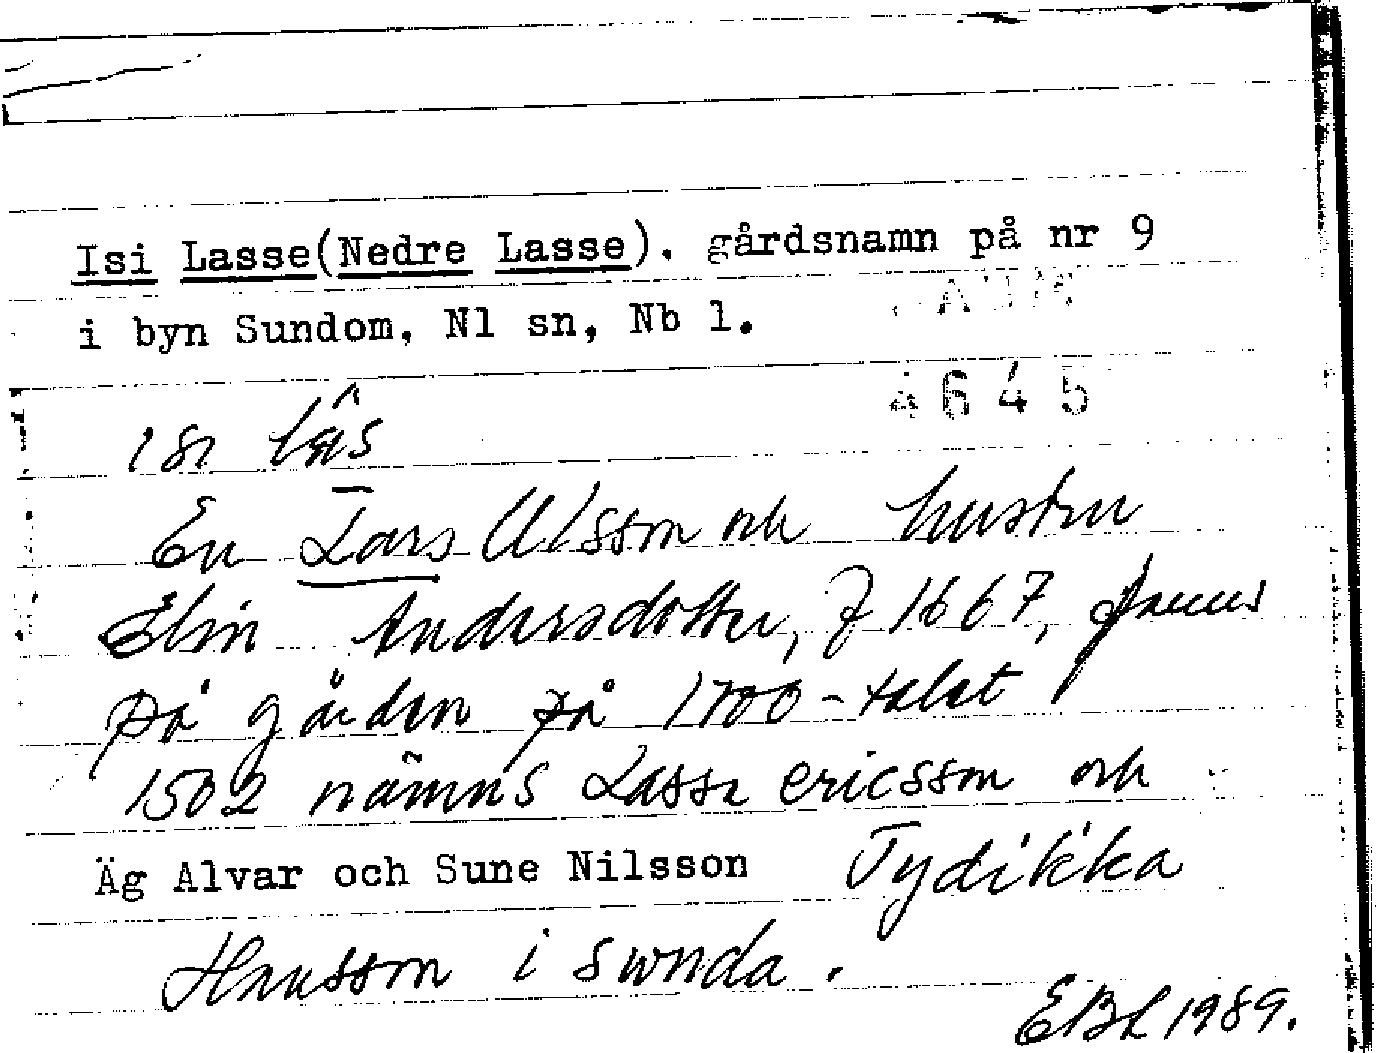 Isi Lasse(Nedre Lasse). gårdsnamn på nr 9
i byn Sundom, Nl sn, Nb l.
4645
isi
En Lars Olsson och hustru
Elin Andersdotter, f 1667, fanns
på gården på 1700-talet
1502 nämns Lasse ericsson och
Äg Alvar och Sune Nilsson Tydikka
Hansson i Swnda.
EBL 1989.